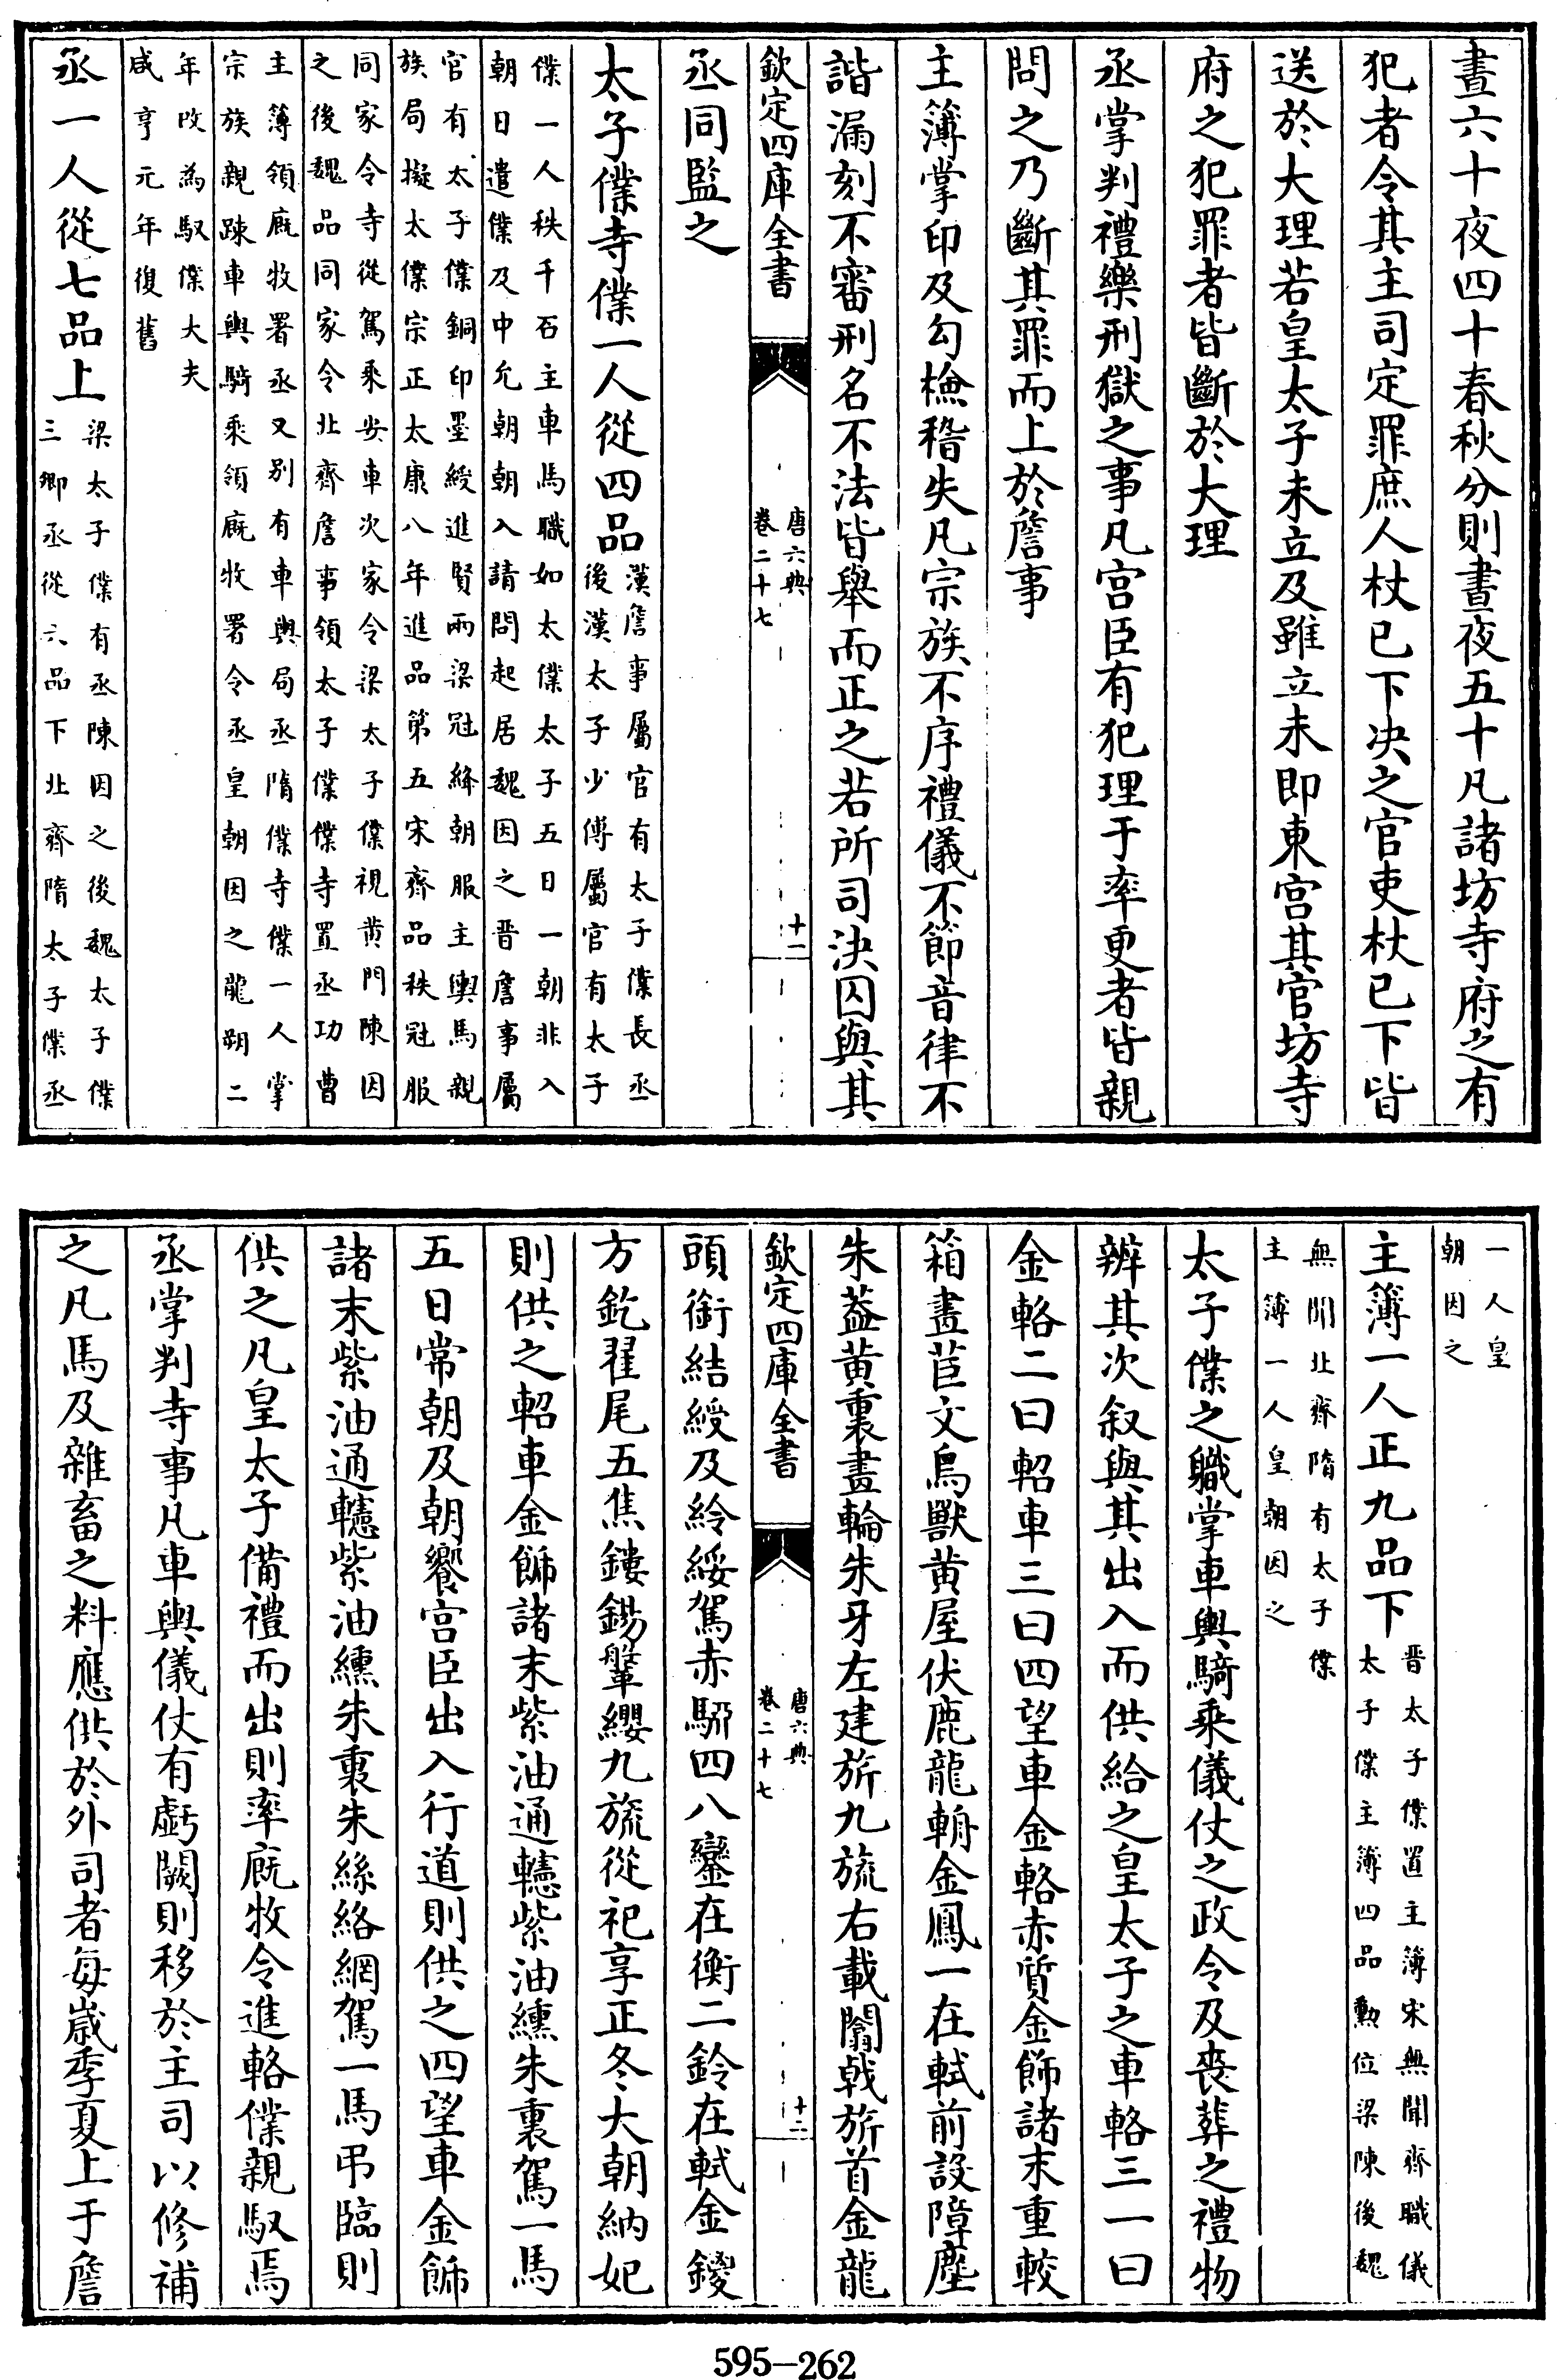 晝六十夜四十春秋分則晝夜五十凡諸坊寺府之有
犯者令其主司定罪庶人杖已下決之官吏杖已下皆
送於大理若皇太子未立及雖立未即東宫其官坊寺
府之犯罪者皆斷於大理
丞掌判禮樂刑獄之事凡宫臣有犯理于率更者皆親
問之乃斷其罪而上於詹事
主簿掌印及勾檢稽失凡宗族不序禮儀不節音律不
諧漏刻不審刑名不法皆舉而正之若所司決囚與其
欽定四庫全書
唐六典
卷二十七
十一
丞同監之
太子僕寺僕一人從四品
漢詹事屬官有太子僕長丞
後漢太子少傅屬官有太子
僕一人秩千石主車馬職如太僕太子五日一朝非入
朝日遣僕及中允朝朝入請問起居魏因之晋詹事屬
官有太子僕銅印墨綬進賢兩梁冠絳朝服主輿馬親
族局擬太僕宗正太康八年進品第五宋齊品秩冠服
同家令寺從駕乘安車次家令梁太子僕視黄門陳因
之後魏品同家令北齊詹事領太子僕僕寺置丞功曹
主簿領廐牧署丞又别有車輿局丞隋僕寺僕一人掌
宗族親踈車輿騎乘領廐牧署令丞皇朝因之龍朔二
年改為馭僕大夫
咸亨元年復舊
丞一人從七品上
梁太子僕有丞陳因之後魏太子僕
三卿丞從六品下北齊隋太子僕丞
一人皇
朝因之
主簿一人正九品下
晋太子僕置主簿宋無聞齊職儀
太子僕主簿四品勲位梁陳後魏
無聞北齊隋有太子僕
主簿一人皇朝因之
太子僕之職掌車輿騎乘儀仗之政令及喪葬之禮物
辨其次叙與其出入而供給之皇太子之車輅三一曰
金輅二曰軺車三曰四望車金輅赤質金飾諸末重較
箱畫苣文鳥獸黄屋伏鹿龍輈金鳳一在軾前設障塵
朱葢黄裏畫輪朱牙左建旂九旒右載闟戟旂首金龍
欽定四庫全書
唐六典
卷二十七
十二
頭銜結綬及鈴綏駕赤駵四八鑾在衡二鈴在軾金鍐
方釳翟尾五焦鏤錫鞶纓九旒從祀享正冬大朝納妃
則供之軺車金飾諸末紫油通幰紫油纁朱裏駕一馬
五日常朝及朝饗宫臣出入行道則供之四望車金飾
諸末紫油通幰紫油纁朱裏朱絲絡網駕一馬弔臨則
供之凡皇太子備禮而出則率廐牧令進輅僕親馭焉
丞掌判寺事凡車輿儀仗有虧闕則移於主司以修補
之凡馬及雜畜之料應供於外司者每歲季夏上于詹
595-262